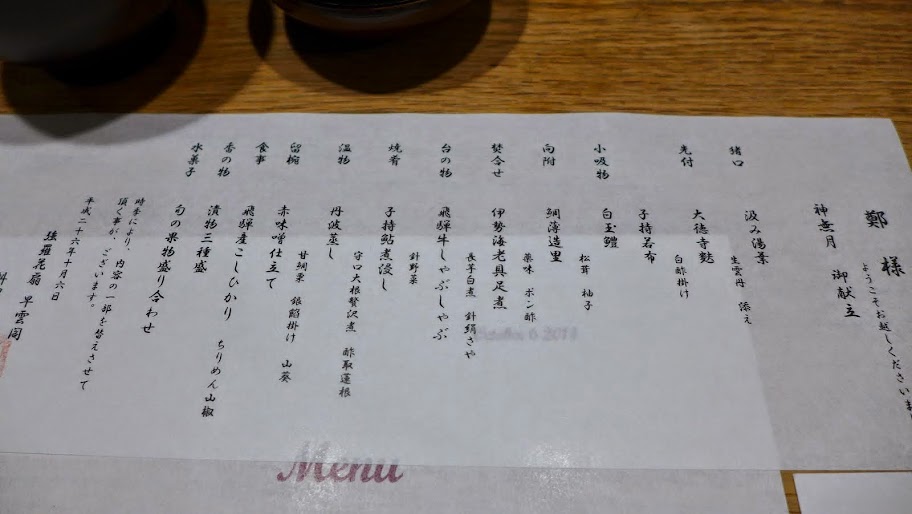 鄭 様
ようこそお越しくださいま
神無月 御献立
猪口 汲み湯葉
生雲丹 添え
先付 大徳寺麩
白酢掛け
子持若布
小吸物 白玉鱧
松茸 柚子
向附 鯛薄造里
薬味 ポン酢
焚合せ 伊勢海老具足煮
長芋白煮 針絹さや
台の物 飛騨牛しゃぶしゃぶ
針野菜
焼肴 子持鮎煮浸し
守口大根贅沢煮 酢取蓮根
温物 丹波蒸し
甘鯛栗 銀餡掛け 山葵
留椀 赤味噌仕立て
食事 飛騨産こしひかり ちりめん山椒
香の物 漬物三種盛
水菓子 旬の果物盛り合わせ
時季により、内容の一部を替えさせて
頂く事が、ございます。
平成二十六年十月六日
強羅花扇 早雲閣
料
October 6 2014
Menu